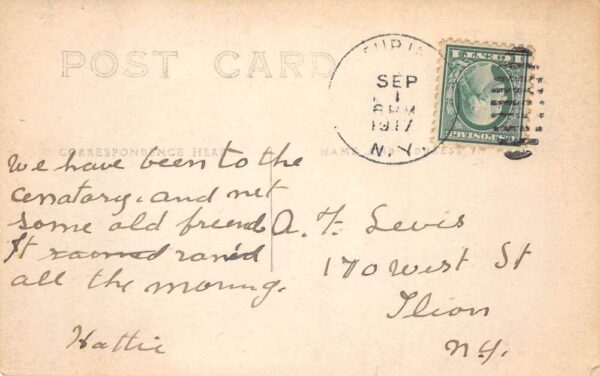 POST CARD
SEP
1
6 PM
1917
N.Y.
CORRESPONDENCE HERE
NAME AND ADDRESS H
We have been to the
cenatory. and met
some old friends
It rained ranid
all the morning.
Hattie
A. F. Lewis
170 West St
Ilion
N.Y.